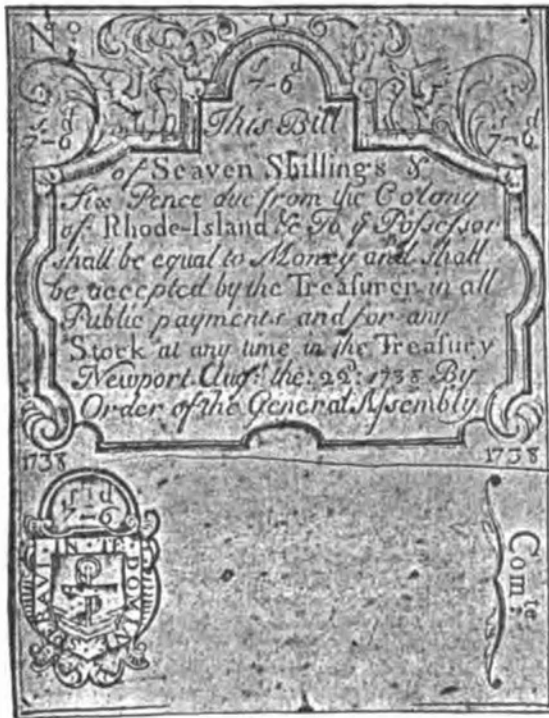 No.
s d
7-6
s d
7-6
s d
7-6
This Bill
of Seaven Shillings &
Six Pence due from the Colony
of Rhode-Island &c To ye Possessor
shall be equal to Money and shall
be accepted by the Treasurer in all
Public payments and for any
Stock at any time in the Treasury
Newport. Augst. the: 22d: 1738 By
Order of the General Assembly
1738
1738
s d
7-6
IN TE DOMIN
Comte: